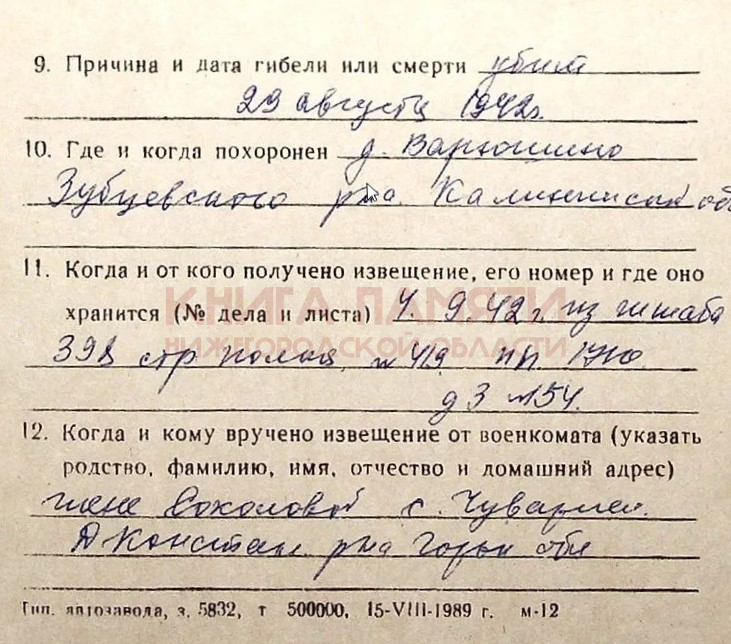 9. Причина и дата гибели или смерти убит
29 августа 1942г.
10. Где и когда похоронен д. Варюшино
Зубцевского р-на. Калининской об
11. Когда и от кого получено извещение, его номер и где оно
КНИГА ПАМЯТИ
хранится (№ дела и листа) 4. 9.42 г. из штаба
НИЖЕГОРОДСКОЙ ОБЛАСТИ
398 стр полка, №419 пп. 1710
д 3 л 54.
12. Когда и кому вручено извещение от военкомата (указать
родство, фамилию, имя, отчество и домашний адрес)
жене Соколовой с.
Д Констан. р-на Горьк обл
Тип. автозавода, з. 5832, т 500000, 15-VIII-1989 г. м-12